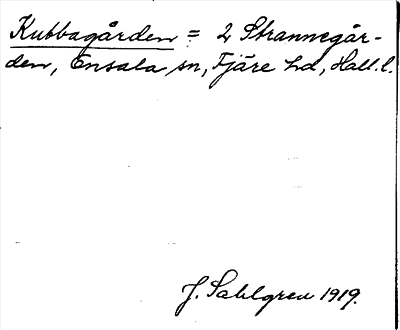 Kubbagården = 2 Strannegår-
den, Ensala sn, Fjäre hd, Hall. l.
J. Sahlgren 1919.